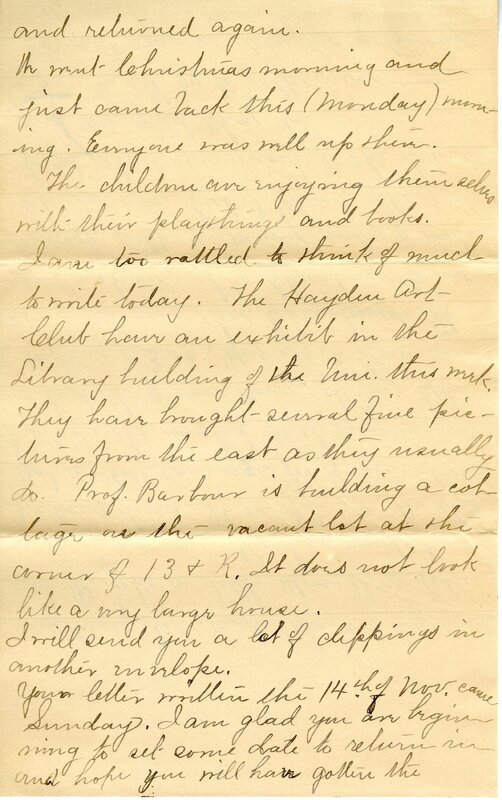 and returned again.
We went Christmas morning and
just came back this (Monday) morn-
ing. Everyone was well up there.
The children are enjoying themselves
with their playthings and books.
I am too rattled to think of much
to write today. The Hayden Art
Club have an exhibit in the
Library building of the Uni. this week.
They have brought several fine pic-
tures from the east as they usually
do. Prof. Barbour is building a cot-
tage on the vacant lot at the
corner of 13 & R. It does not look
like a very large house.
I will send you a lot of clippings in
another envelope.
Your letter written the 14th of Nov. came
Sunday. I am glad you are begin-
ning to set some date to return in
and hope you will have gotten the